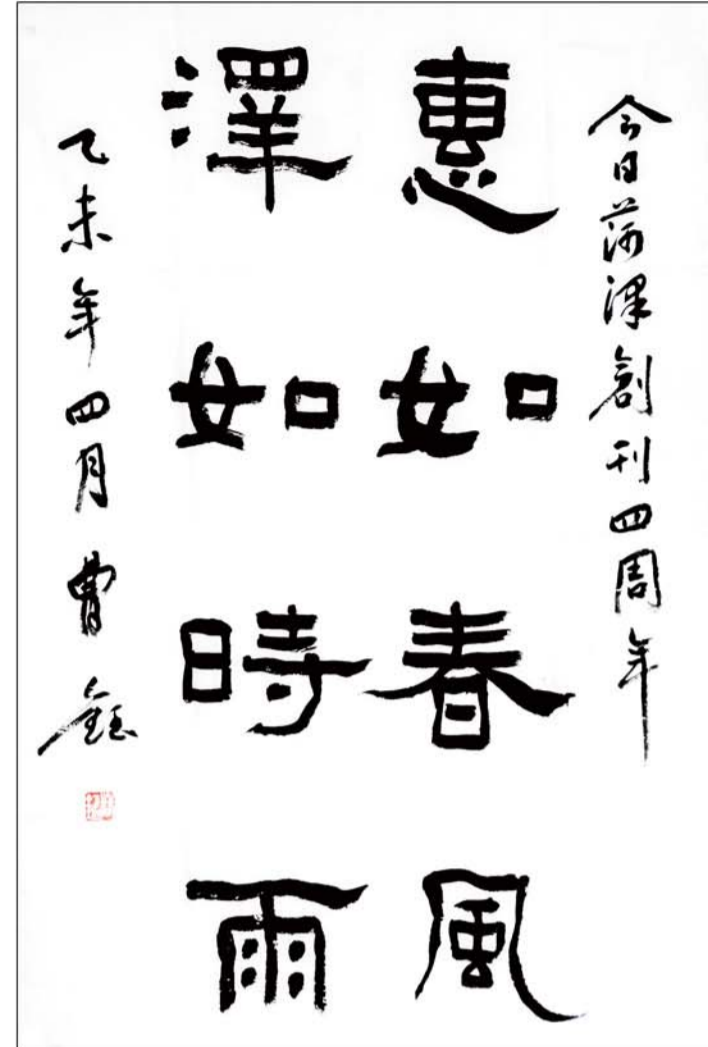 今日菏澤創刊四周年
惠如春風
澤如時雨
乙未年四月曹鈺